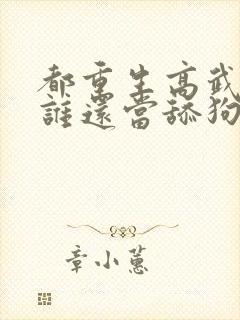 都重生高武
誰還當舔狗
章小蕙